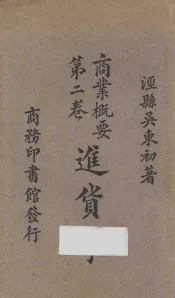 涇縣吳東初著
商業概要
第二卷
進貨
商務印書館發行